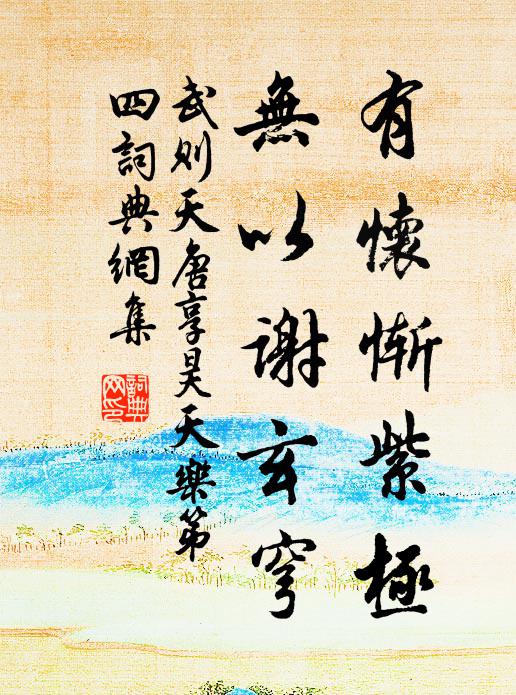 有懷慚紫極
無以謝玄穹
武則天唐享昊天樂第
四詞典網集
詞典
網印